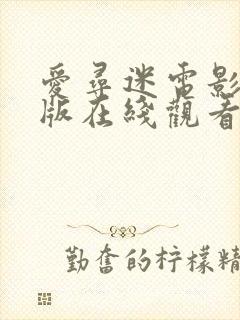 愛尋迷電影
版在綫觀看
勤奮的柠檬精